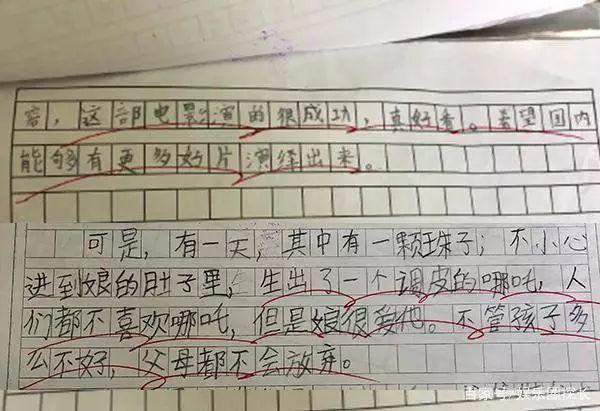 容，这部电影演的很成功，真好看。希望国内
能够有更多好片演绎出来。
可是，有一天，其中有一颗珠子；不小心
进到娘的肚子里，生出了一个调皮的哪吒，人
们都不喜欢哪吒，但是娘很爱他。不管孩子多
么不好，父母都不会放弃。
百家号/娱乐圈探长